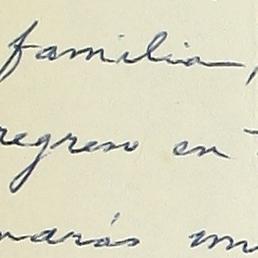 familia,
regreso en
marás